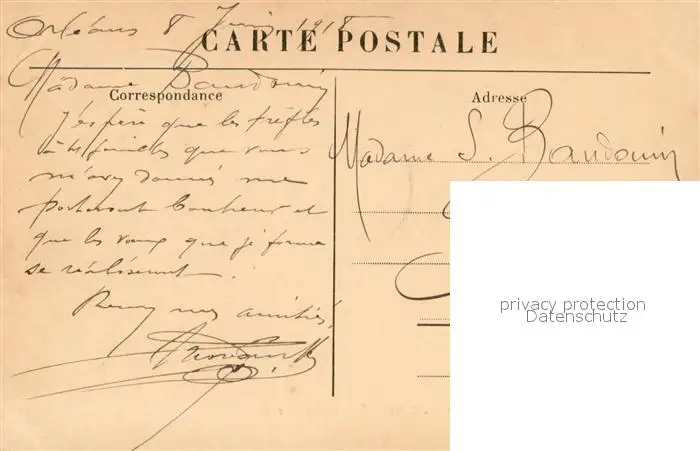 Orléans 8 Juin 1918
CARTE POSTALE
Madame Baudouin
Correspondance
Adresse
J'espère que les trèfles
à 4 feuilles que vous
m'avez donnés me
porteront bonheur et
que les vœux que je forme
se réaliseront.
Madame S. Baudouin
mes amitiés
privacy protection
Datenschutz